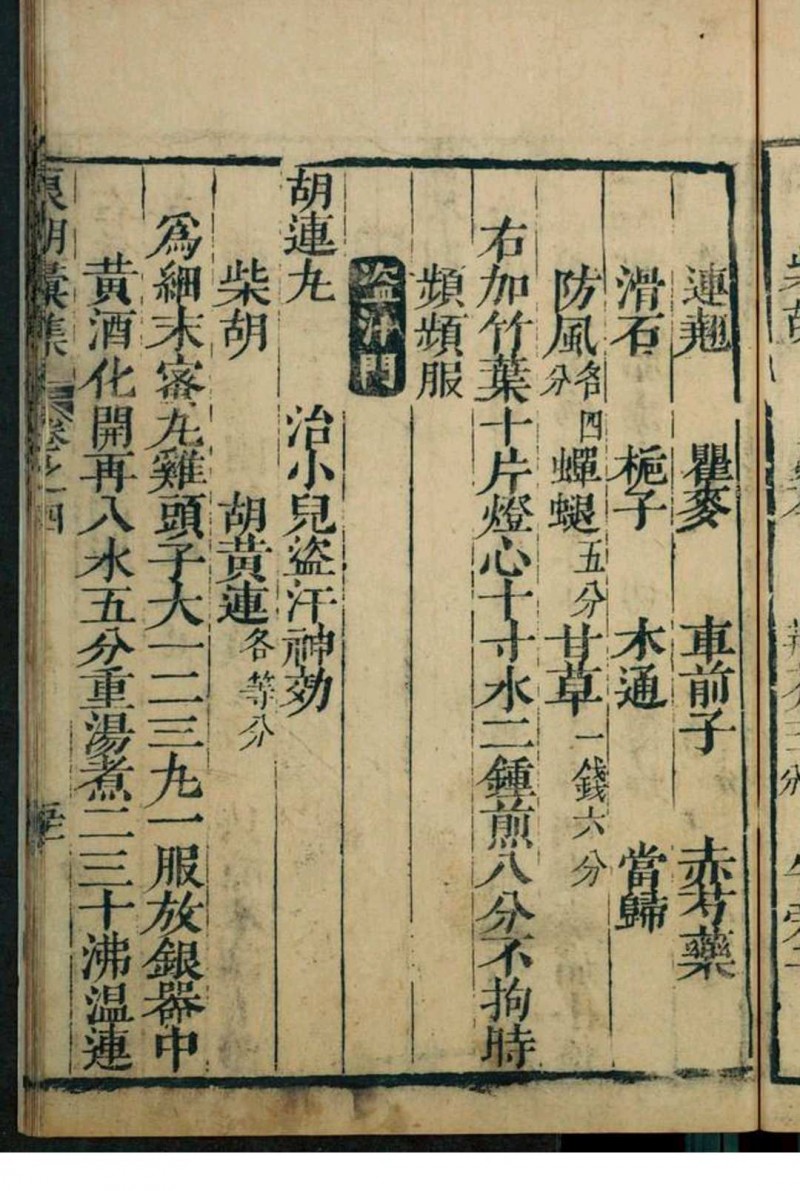 連翹 瞿麥 車前子 赤芍藥
滑石 梔子 木通 當歸
防風各四分 蟬蛻五分 甘草一錢六分
右加竹葉十片燈心十寸水二鍾煎八分不拘時
頻頻服
盜汗門
胡連丸 治小兒盜汗神効
柴胡 胡黃連各等分
爲細末蜜丸雞頭子大一二三丸一服放銀器中
黃酒化開再入水五分重湯煮二三十沸温連
集 卷之四